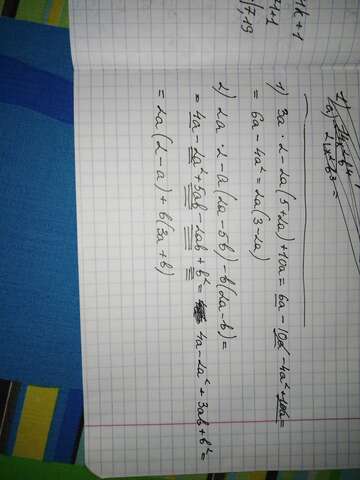 1k+1
4+1
7,19
1) 3a · 2 - 2a(5+2a) + 10a = 6a - 10a - 4a² + 10a =
= 6a - 4a² = 2a(3-2a)
2) 2a · 2 - a(2a-5b) - b(2a-b) =
= 4a - 2a² + 5ab - 2ab + b² = 4a - 2a² + 3ab + b² =
= 2a(2-a) + b(3a+b)